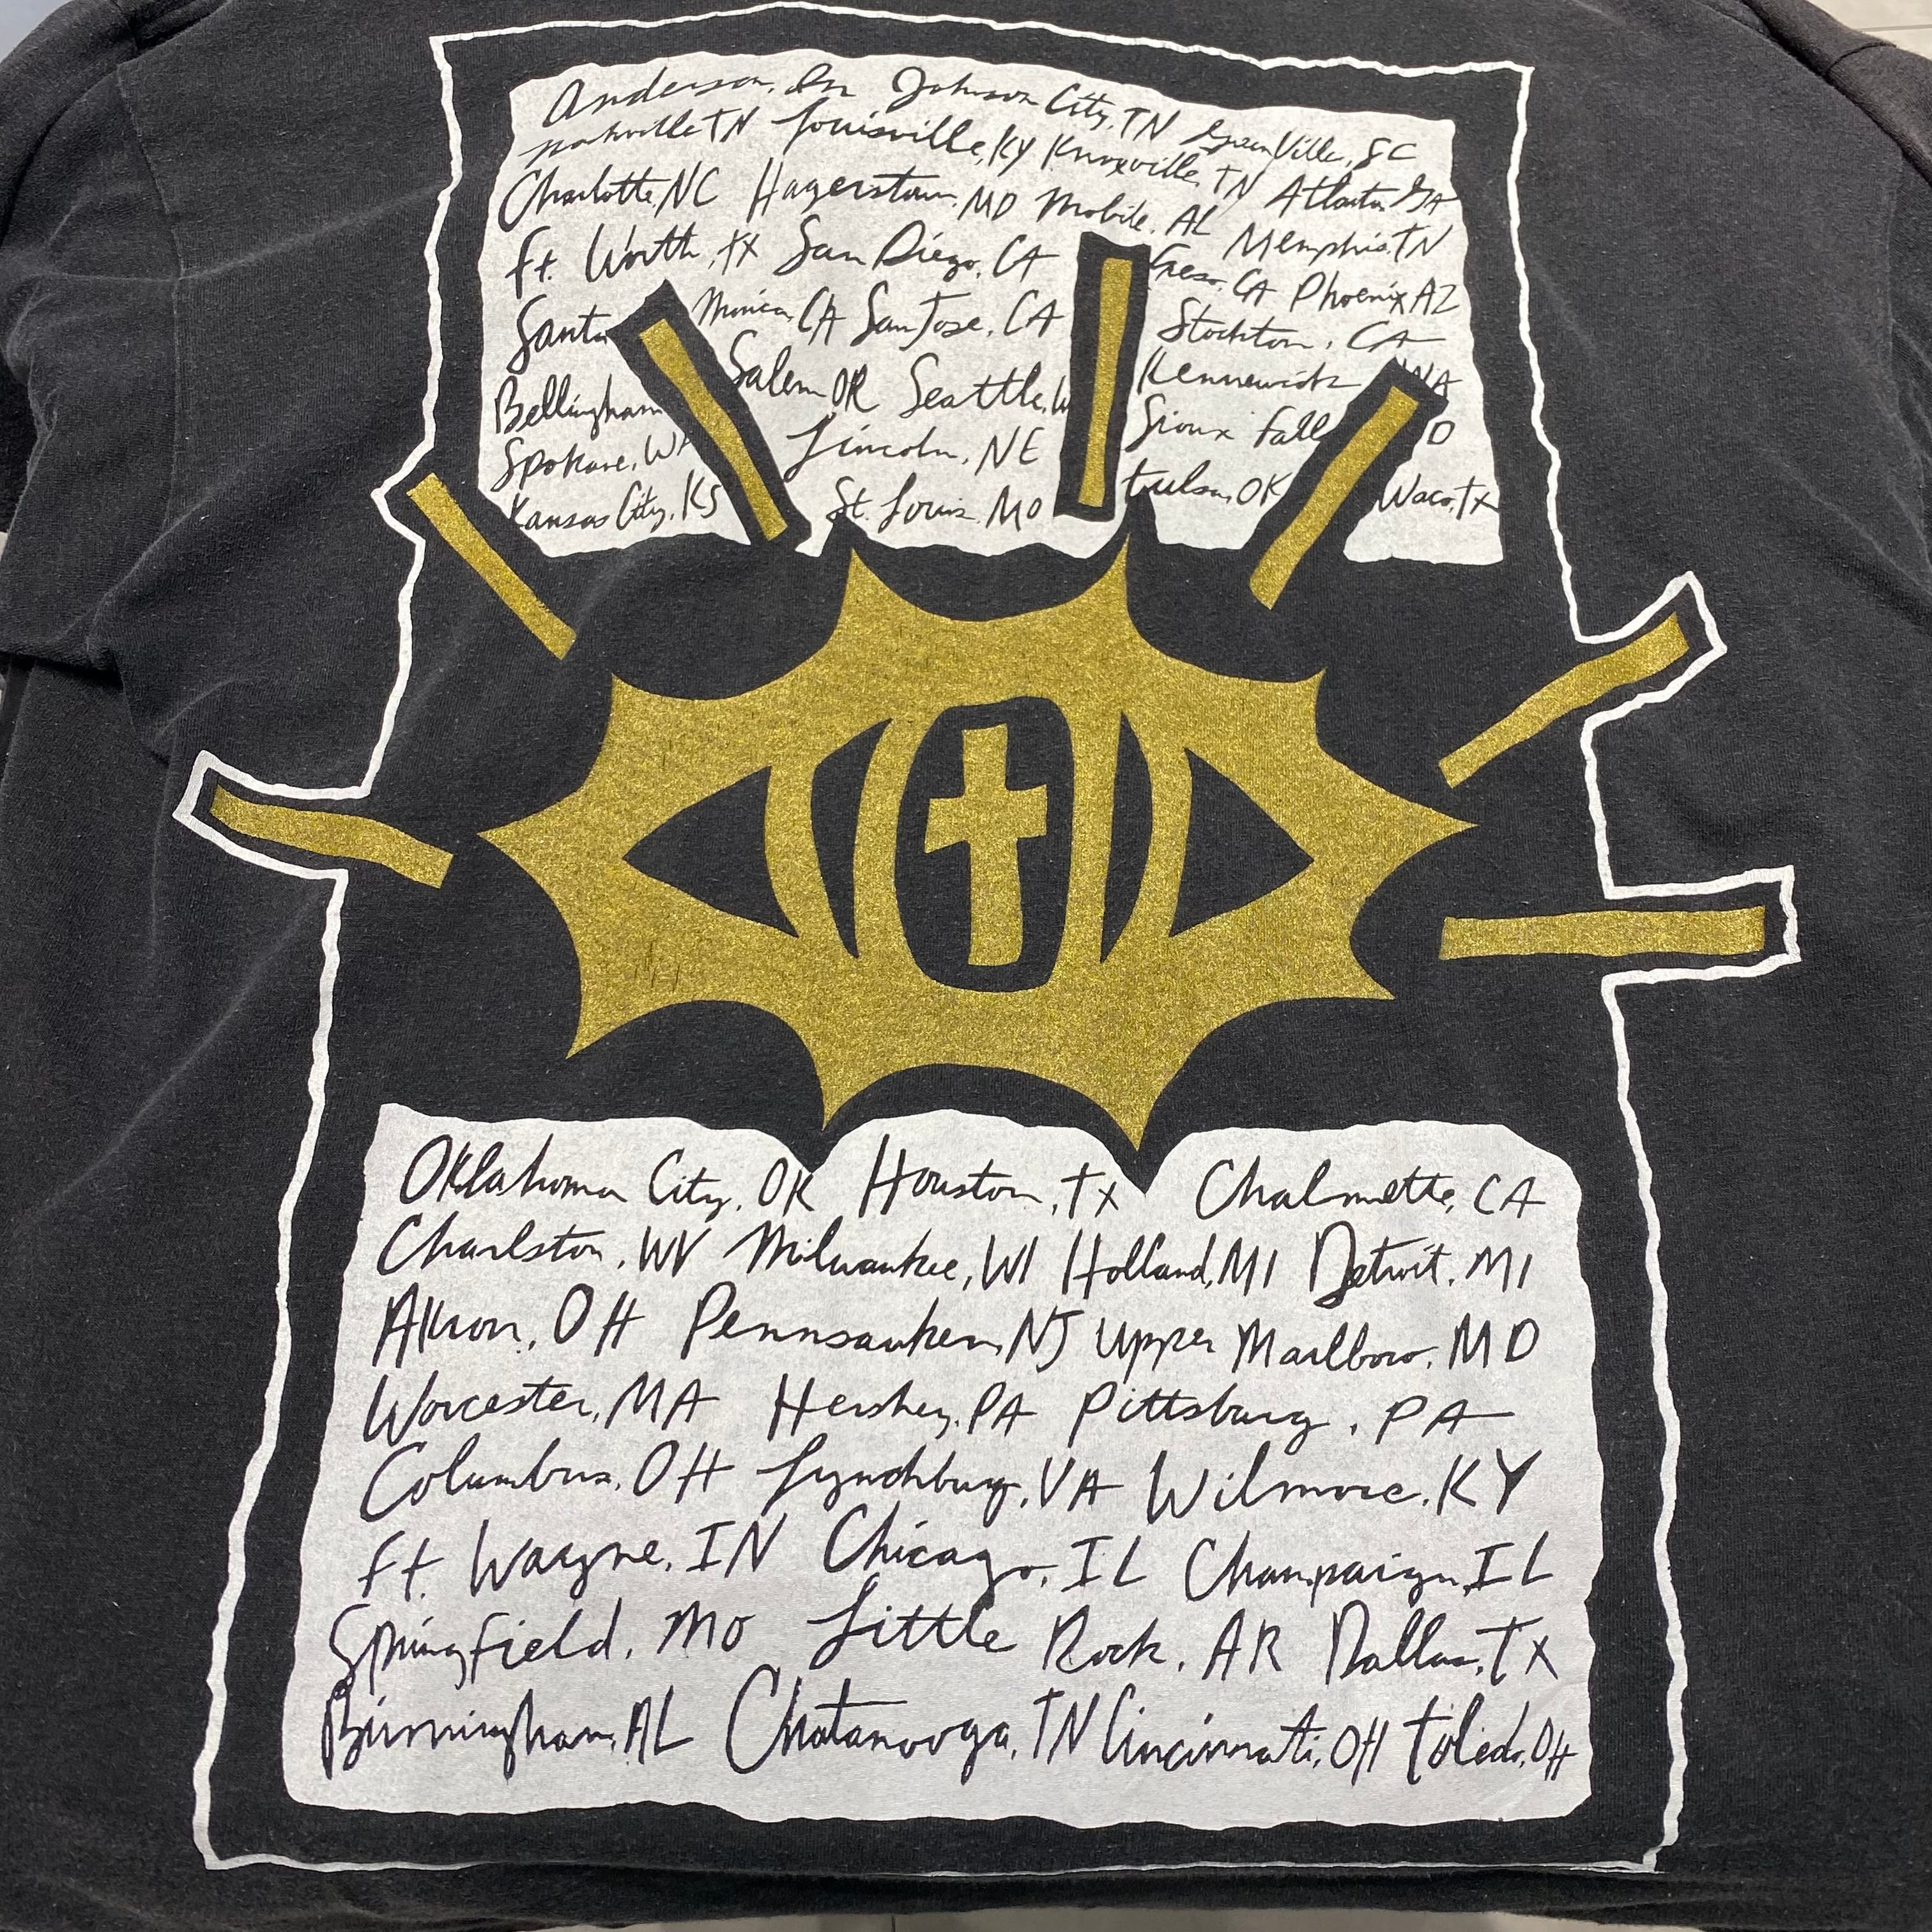 Anderson, In Johnson City, TN Greenville, SC
Nashville TN Louisville, KY Knoxville, TN Atlanta GA
Charlotte, NC Hagerstown, MD Mobile, AL Memphis, TN
Ft. Worth, TX San Diego, CA CA Phoenix AZ
Santa Monica, CA San Jose, CA Stockton, CA
Bellingham Salem OR Seattle, W Kennewick WA
Spokane, WA Lincoln, NE Sioux Fall D
Kansas City, KS St. Louis, MO Tulsa, OK Waco, TX
Oklahoma City, OK Houston, TX Chalmette, CA
Charlston, WV Milwaukee, WI Holland, MI Detroit, MI
Akron, OH Pennsauken, NJ Upper Marlboro, MD
Worcester, MA Hershey, PA Pittsburg, PA
Columbus, OH Lynchburg, VA Wilmore, KY
Ft. Wayne, IN Chicago, IL Champaign, IL
Springfield, MO Little Rock, AR Dallas, TX
Birmingham, AL Chatanooga, TN Cincinnati, OH Toledo, OH